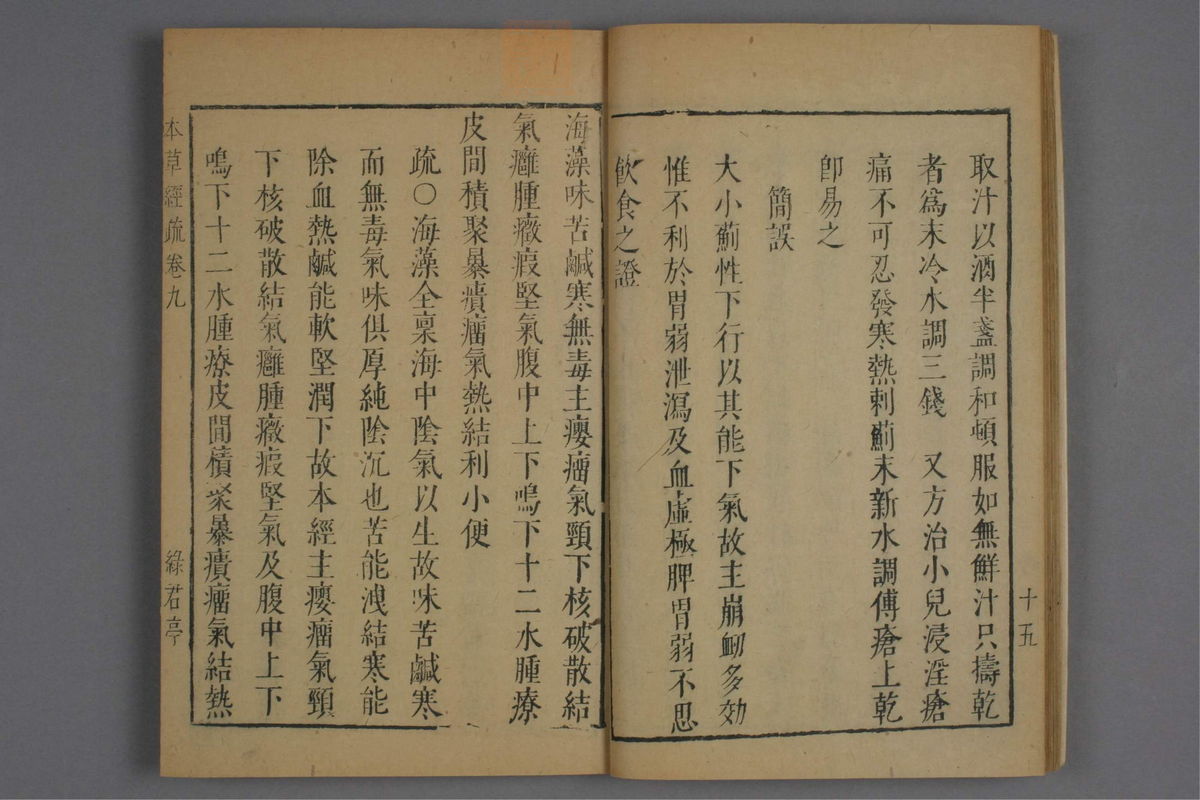 取汁以酒半盞調和頓服如無鮮汁只擣乾
者爲末冷水調三錢　又方治小兒浸淫瘡
痛不可忍發寒熱刺薊末新水調傅瘡上乾
卽易之
簡誤
大小薊性下行以其能下氣故主崩衂多効
惟不利於胃弱泄瀉及血虛極脾胃弱不思
飮食之證
十五
海藻味苦鹹寒無毒主癭瘤氣頸下核破散結
氣癰腫癥瘕堅氣腹中上下鳴下十二水腫療
皮間積聚暴㿉瘤氣熱結利小便
疏○海藻全稟海中陰氣以生故味苦鹹寒
而無毒氣味俱厚純陰沉也苦能洩結寒能
除血熱鹹能軟堅潤下故本經主癭瘤氣頸
下核破散結氣癰腫癥瘕堅氣及腹中上下
鳴下十二水腫療皮間積聚暴㿉瘤氣結熱
本草經疏卷九
綠君亭